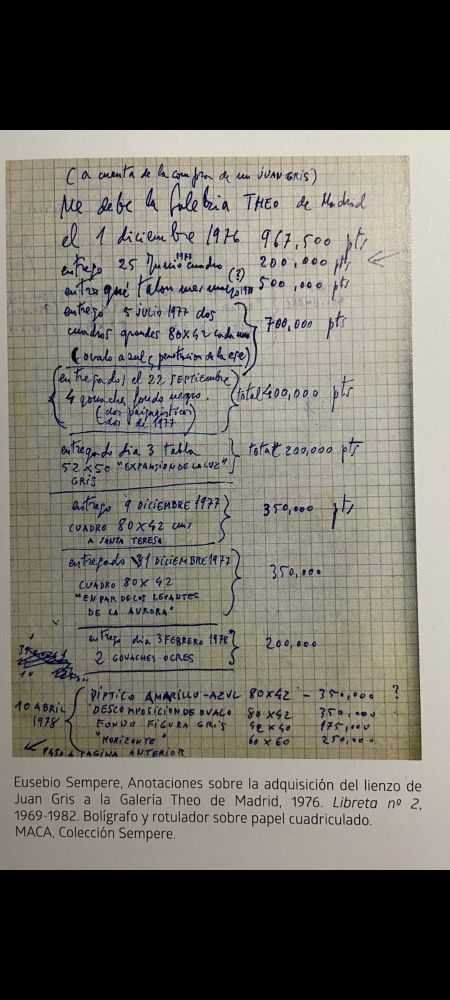 (a cuenta de la compra de un JUAN GRIS)
Me debe la Galeria THEO de Madrid
el 1 diciembre 1976 967,500 pts
entrego 25 Junio 1977 cuadro (?) 200,000 pts
entregué talon mes mayo 1977 500,000 pts
entrego 5 JULIO 1977 dos
cuadros grandes 80X42 cada uno 700,000 pts
(ovalo azul (penetracion de la ese)
entregado, el 22 SEPTIEMBRE
4 gouaches fondo negro. total 400,000 pts
(dos paisagisticos
dos de 1977)
entregado dia 3 tabla total 200,000 pts
52X50 "EXPANSION DE LA LUZ"
GRIS
entrego 9 DICIEMBRE 1977 350,000 pts
CUADRO 80X42 cms
A SANTA TERESA
entregado 31 DICIEMBRE 1977
CUADRO 80X42 350,000
"EN PAR DE LOS LEVANTES
DE LA AURORA"
entrego dia 3 FEBRERO 1978 200,000
2 GOUACHES OCRES
10 ABRIL 1978
DIPTICO AMARILLO-AZUL 80X42 - 350,000 ?
DESCOMPOSICION DE OVALO 80 X42 350,000
FONDO FIGURA GRIS 42 X40 175,000
"HORIZONTE" 60 X 60 250,000
PASO A PAGINA ANTERIOR
Eusebio Sempere, Anotaciones sobre la adquisición del lienzo de
Juan Gris a la Galería Theo de Madrid, 1976. Libreta nº 2,
1969-1982. Bolígrafo y rotulador sobre papel cuadriculado.
MACA, Colección Sempere.